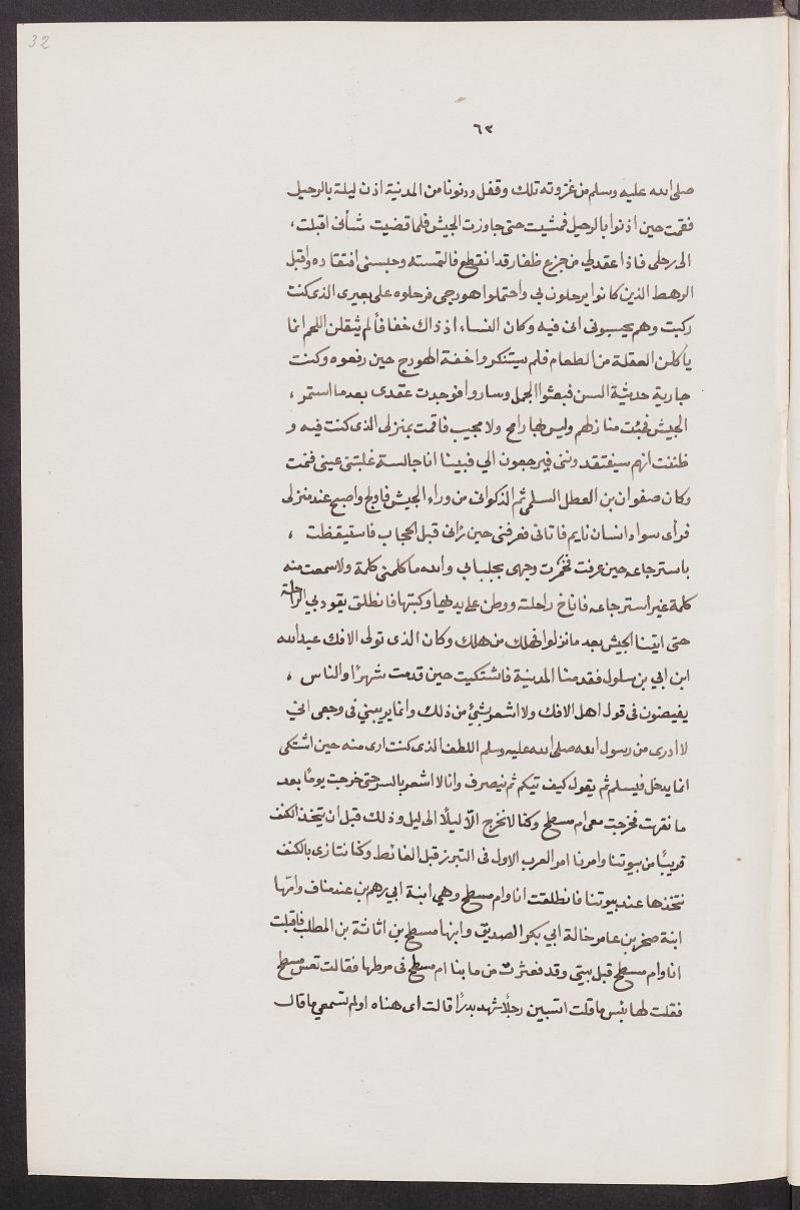 32
٦٢
صلى الله عليه وسلم من غزوته تلك وقفل ودنونا من المدنية اذن ليلة بالرحيل
فقمت حين اذنوا بالرحيل فمشيت حتى جاوزت الجيش فلما قضيت شأنى اقبلت ،
الى رحلى فاذا عقد لي من جزع ظفار قد انقطع فالتمسته وحبسنى افتقاده واقبل
الرهط الذين كانوا يرحلون بي واحتملوا هودجى فرحلوه على بعيرى الذى كنت
ركبت وهم يحسبونى انى فيه وكان النساء اذ ذاك خفافاً لم يثقلن اللحم انما
ياكلن العقلة من الطعام فلم يستنكروا خفة الهودج حين رفعوه وكنت
جارية حديثة السن فبعثوا الجمل وساروا فوجدت عقدى بعد ما استمر ،
الجيش فجئت منازلهم وليس بها داع ولا مجيب فاقمت بمنزلى الذى كنت فيه و
ظننت انهم سيفتقدوننى فيرجعون الي فبينا انا جالسة غلبتنى عينى فنمت
وكان صفوان بن المعطل السلمي ثم الذكوانى من وراء الجيش فاولج واصبح عند منزلى
فرأى سواد انسان نايم فاتانى فعرفنى حين رأنى قبل الحجاب فاستيقظت ،
باسترجاعه حين عرفت فخمّرت وجهى بجلبابي والله ما كلمنى كلمة ولا سمعت منه
كلمة غير استرجاعه فاناخ راحلته ووطئ على يدها وكبتها فانطلق يقود بي الراحلة
حتى اتينا الجيش بعد ما نزلوا فهلك من هلك وكان الذى تولى الافك عبدالله
ابن ابي بن سلول فقدمنا المدنية فاشتكيت حين قدمت شهرًا والناس ،
يفيضون فى قول اهل الافك ولا اشعر بشئ من ذلك وانما يريبني فى وجعى انى
لا ادرى من رسول الله صلى الله عليه وسلم اللطف الذى كنت ارى منه حين اشتكى
انما يدخل فيسلم ثم يقول كيف تيكم ثم ينصرف وانا لا اشعر بالسر حتى خرجت يومًا بعد
ما نقهت فخرجت مع ام مسطح وكنا لا نخرج الّا ليلًا الى ليل وذلك قبل ان يتخذ الكنف
قريبًا من بيوتنا وامرنا امر العرب الاول فى التبرز قبل الغائط وكنا نتازى بالكنف
نتخذها عند بيوتنا فانطلقت انا وام مسطح وهي ابنة ابي رهم بن عند مناف وامها
ابنة صخر بن عامر خالة ابي بكر الصديق وابنها مسطح بن اثاثة بن المطلب فاقبلت
انا وام مسطح قبل بيتى وقد فعثرت من ما بنا ام مسطح فى مرطها فقالت تعس مسطح
فقلت لها بئس ما قلت اتسبين رجلًا شهد بدرًا قالت اى هناه اولم تسمعي ما قال